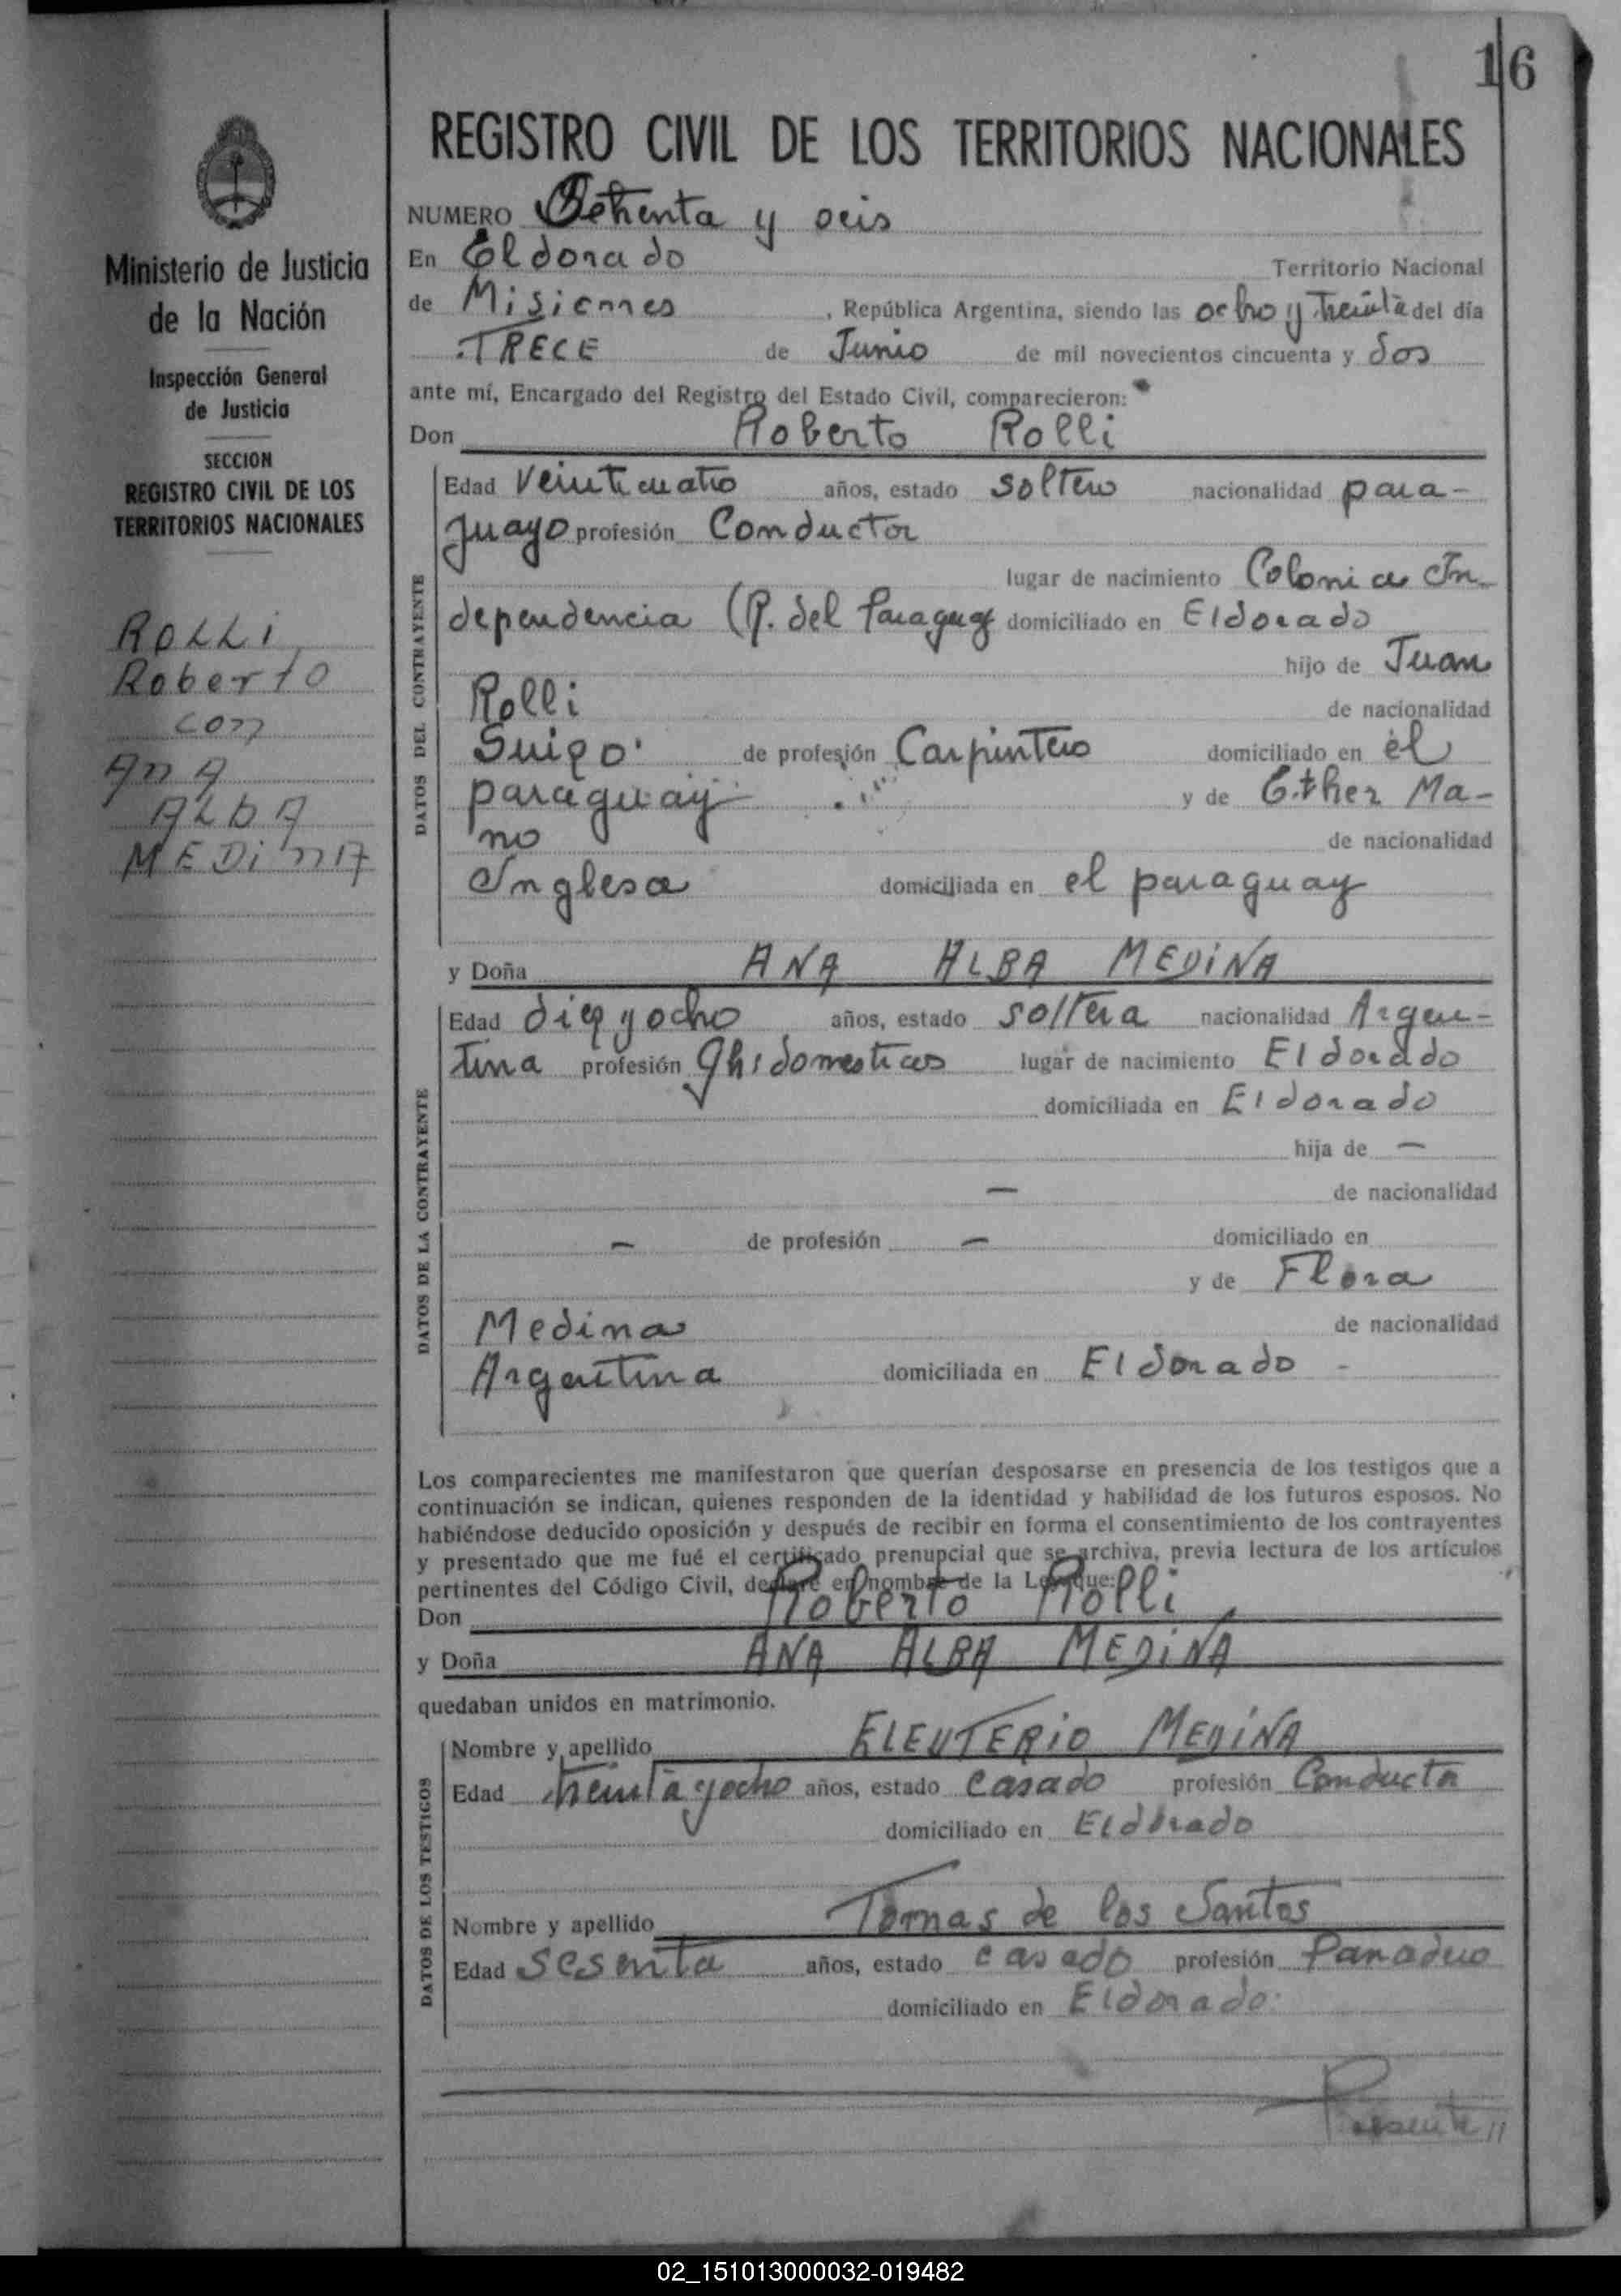 16
REGISTRO CIVIL DE LOS TERRITORIOS NACIONALES
Ministerio de Justicia
de la Nación
Inspección General
de Justicia
SECCION
REGISTRO CIVIL DE LOS
TERRITORIOS NACIONALES
ROLLi
Roberto
con
ANA
ALBA
MEDiNA
NUMERO Ochenta y seis
En Eldorado Territorio Nacional
de Misiones, República Argentina, siendo las ocho y treinta del día
TRECE de Junio de mil novecientos cincuenta y dos
ante mí, Encargado del Registro del Estado Civil, comparecieron:
Don Roberto Rolli
DATOS DEL CONTRAYENTE
Edad veinticuatro años, estado soltero nacionalidad para-
guayo profesión Conductor
lugar de nacimiento Colonia In-
dependencia (R. del Paraguay domiciliado en Eldorado
hijo de Juan
Rolli de nacionalidad
Suizo de profesión Carpintero domiciliado en el
paraguay y de Esther Ma-
no de nacionalidad
Inglesa domiciliada en el paraguay
y Doña ANA ALBA MEDiNA
DATOS DE LA CONTRAYENTE
Edad diez y ocho años, estado soltera nacionalidad Argen-
tina profesión domesticos lugar de nacimiento Eldorado
domiciliada en Eldorado
hija de —
— de nacionalidad
— de profesión — domiciliado en
y de Flora
Medina de nacionalidad
Argentina domiciliada en Eldorado -
Los comparecientes me manifestaron que querían desposarse en presencia de los testigos que a
continuación se indican, quienes responden de la identidad y habilidad de los futuros esposos. No
habiéndose deducido oposición y después de recibir en forma el consentimiento de los contrayentes
y presentado que me fué el certificado prenupcial que se archiva, previa lectura de los artículos
pertinentes del Código Civil, declaré en nombre de la Ley que:
Don Roberto Rolli
y Doña ANA ALBA MEDiNA
quedaban unidos en matrimonio.
DATOS DE LOS TESTIGOS
Nombre y apellido ELEUTERiO MEDiNA
Edad treinta y ocho años, estado casado profesión Conductor
domiciliado en Eldorado
Nombre y apellido Tomas de los Santos
Edad sesenta años, estado casado profesión Panadero
domiciliado en Eldorado.
02_151013000032-019482